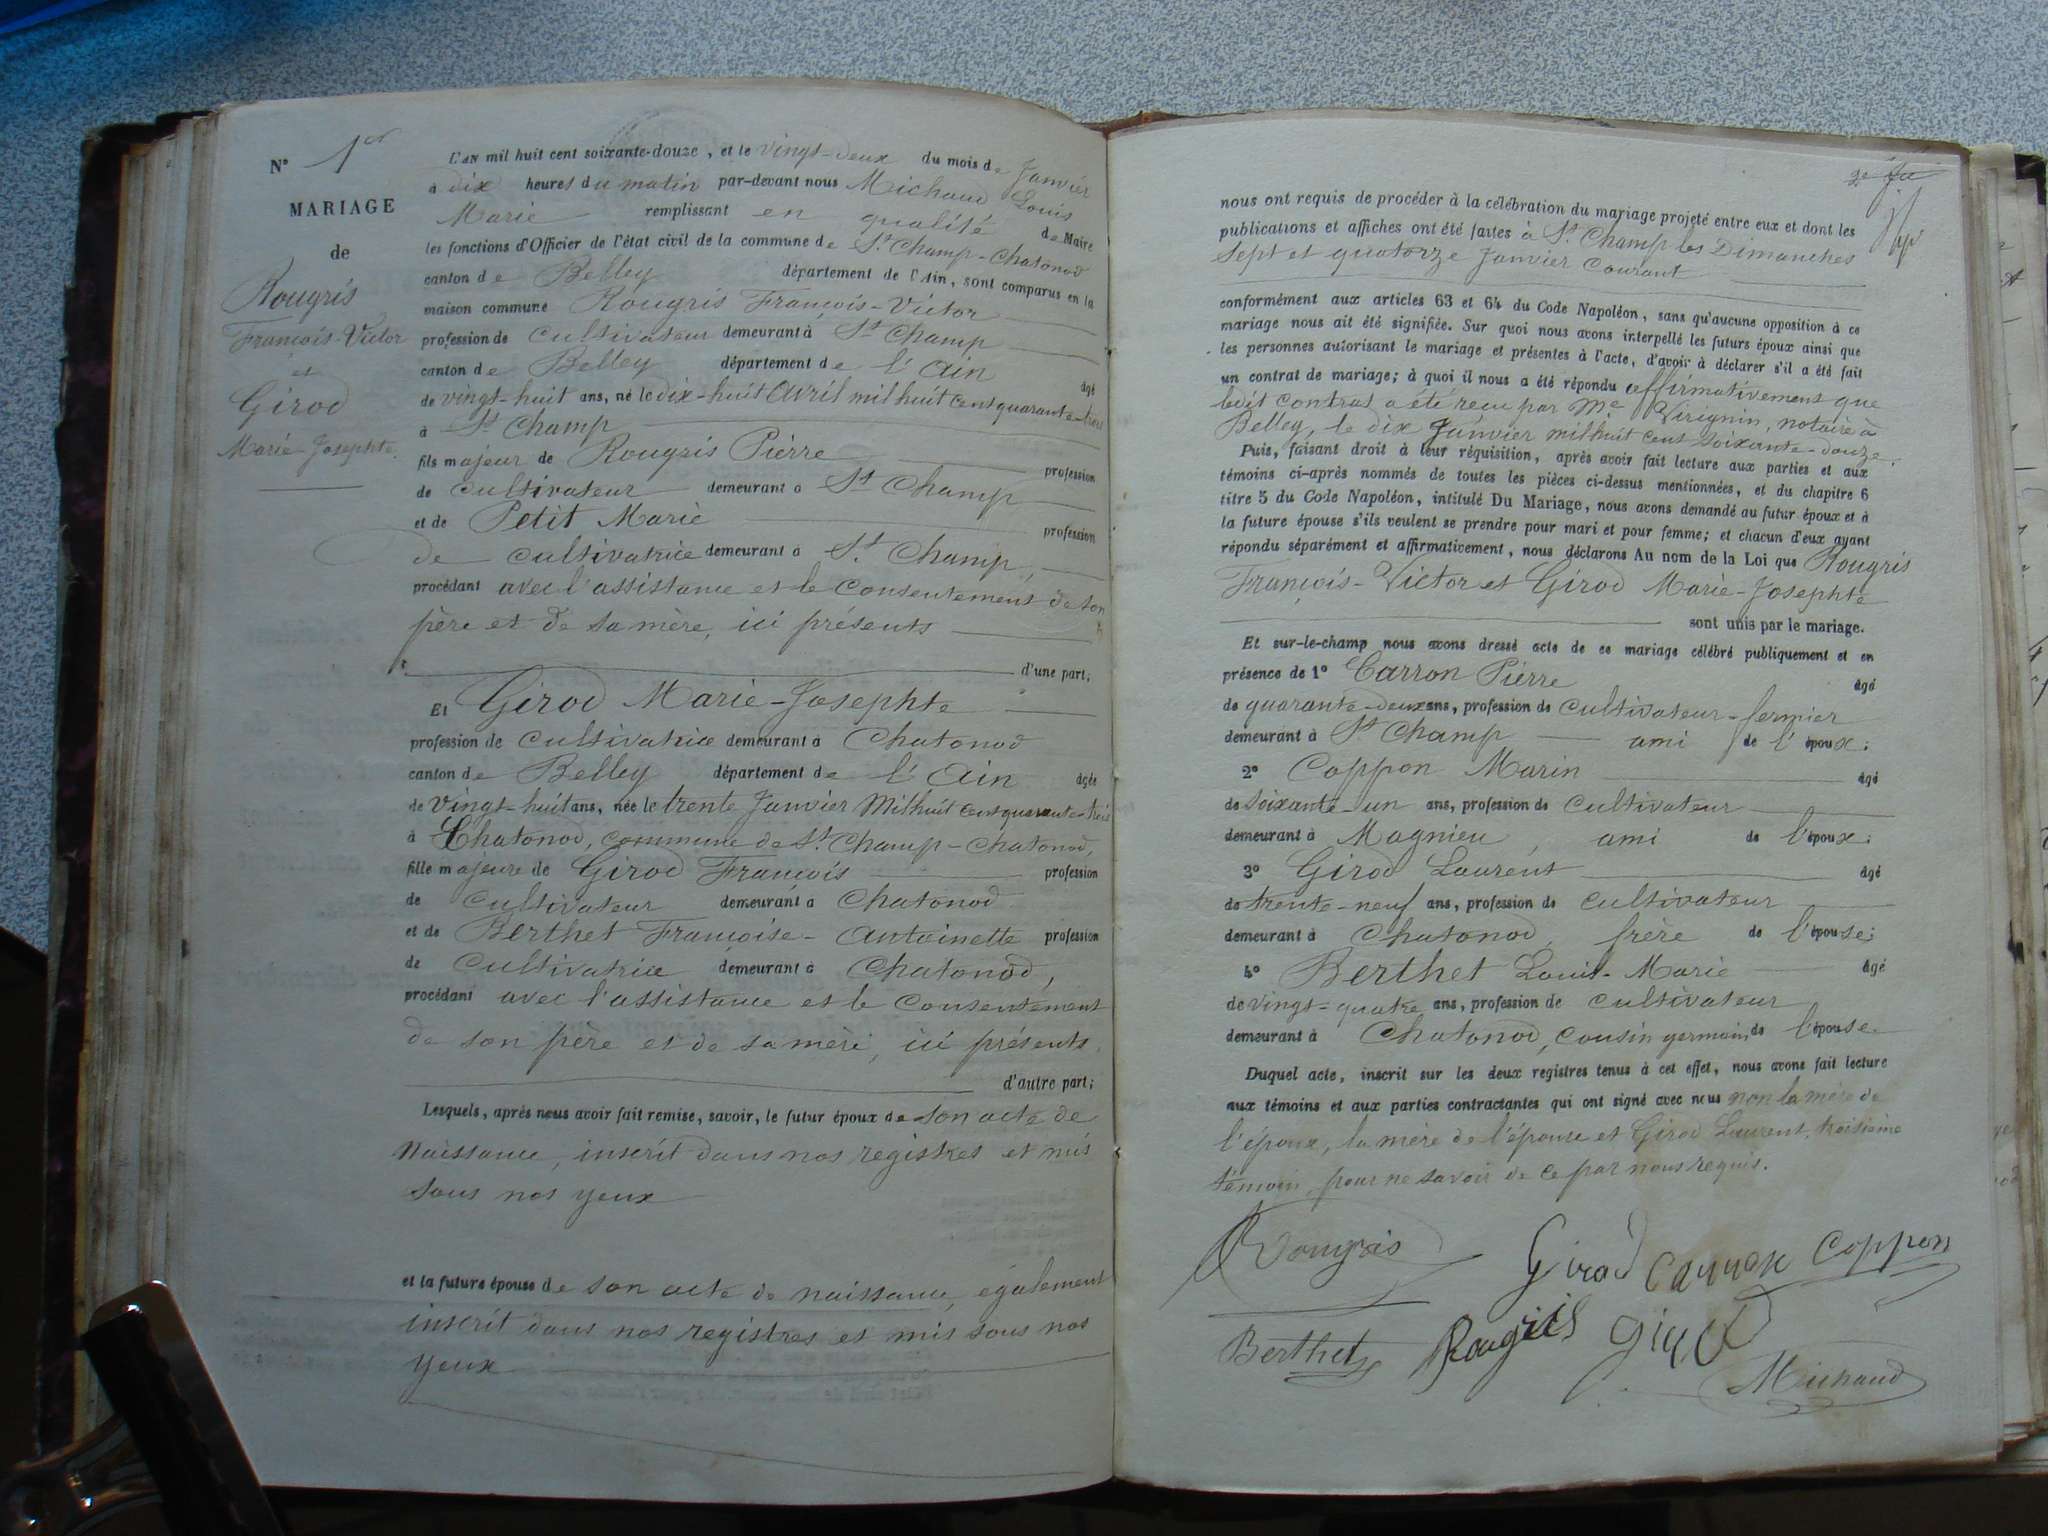 N° 1er
MARIAGE
de
Rougris
François-Victor
et
Girod
Marie-Josephte.
L'AN mil huit cent soixante-douze, et le vingt-deux du mois de Janvier
à dix heures du matin par-devant nous Michaud Louis
Marie remplissant en qualité de Maire
les fonctions d'Officier de l'état civil de la commune de St Champ-Chatonod
canton de Belley département de l'Ain, sont comparus en la
maison commune Rougris François-Victor
profession de cultivateur demeurant à St Champ
canton de Belley département de l'Ain âgé
de vingt-huit ans, né le dix-huit Avril mil huit cent quarante-trois
à St Champ
fils majeur de Rougris Pierre profession
de cultivateur demeurant à St Champ
et de Petit Marie profession
de cultivatrice demeurant à St Champ,
procédant avec l'assistance et le consentement de son
père et de sa mère, ici présents
d'une part;
Et Girod Marie-Josephte
profession de cultivatrice demeurant à Chatonod
canton de Belley département de l'Ain âgée
de vingt-huit ans, née le trente Janvier Mil huit cent quarante-trois
à Chatonod, commune de St Champ-Chatonod,
fille majeure de Girod François profession
de cultivateur demeurant à Chatonod
et de Berthet Françoise-Antoinette profession
de cultivatrice demeurant à Chatonod,
procédant avec l'assistance et le consentement
de son père et de sa mère, ici présents,
d'autre part;
Lesquels, après nous avoir fait remise, savoir, le futur époux de son acte de
naissance, inscrit dans nos registres et mis
sous nos yeux
et la future épouse de son acte de naissance, également
inscrit dans nos registres et mis sous nos
yeux
nous ont requis de procéder à la célébration du mariage projeté entre eux et dont les
publications et affiches ont été faites à St Champ les Dimanches
Sept et quatorze Janvier courant
conformément aux articles 63 et 64 du Code Napoléon, sans qu'aucune opposition à ce
mariage nous ait été signifiée. Sur quoi nous avons interpellé les futurs époux ainsi que
les personnes autorisant le mariage et présentes à l'acte, d'avoir à déclarer s'il a été fait
un contrat de mariage; à quoi il nous a été répondu affirmativement que
ledit contrat a été reçu par Me Virignin, notaire à
Belley, le dix Janvier mil huit cent soixante-douze.
Puis, faisant droit à leur réquisition, après avoir fait lecture aux parties et aux
témoins ci-après nommés de toutes les pièces ci-dessus mentionnées, et du chapitre 6
titre 5 du Code Napoléon, intitulé Du Mariage, nous avons demandé au futur époux et à
la future épouse s'ils veulent se prendre pour mari et pour femme; et chacun d'eux ayant
répondu séparément et affirmativement, nous déclarons Au nom de la Loi que Rougris
François-Victor et Girod Marie-Josephte
sont unis par le mariage.
Et sur-le-champ nous avons dressé acte de ce mariage célébré publiquement et en
présence de 1° Carron Pierre âgé
de quarante-deux ans, profession de cultivateur-fermier
demeurant à St Champ ami de l'époux;
2° Coppon Marin âgé
de soixante-un ans, profession de cultivateur
demeurant à Magnieu, ami de l'époux;
3° Girod Laurent âgé
de trente-neuf ans, profession de cultivateur
demeurant à Chatonod, frère de l'épouse;
4° Berthet Louis-Marie âgé
de vingt-quatre ans, profession de cultivateur
demeurant à Chatonod, cousin germain de l'épouse.
Duquel acte, inscrit sur les deux registres tenus à cet effet, nous avons fait lecture
aux témoins et aux parties contractantes qui ont signé avec nous non la mère de
l'époux, la mère de l'épouse et Girod Laurent, troisième
témoin, pour ne savoir de ce par nous requis.
Rougris Girod Carron Coppon
Berthet Rougris Girod
Michaud